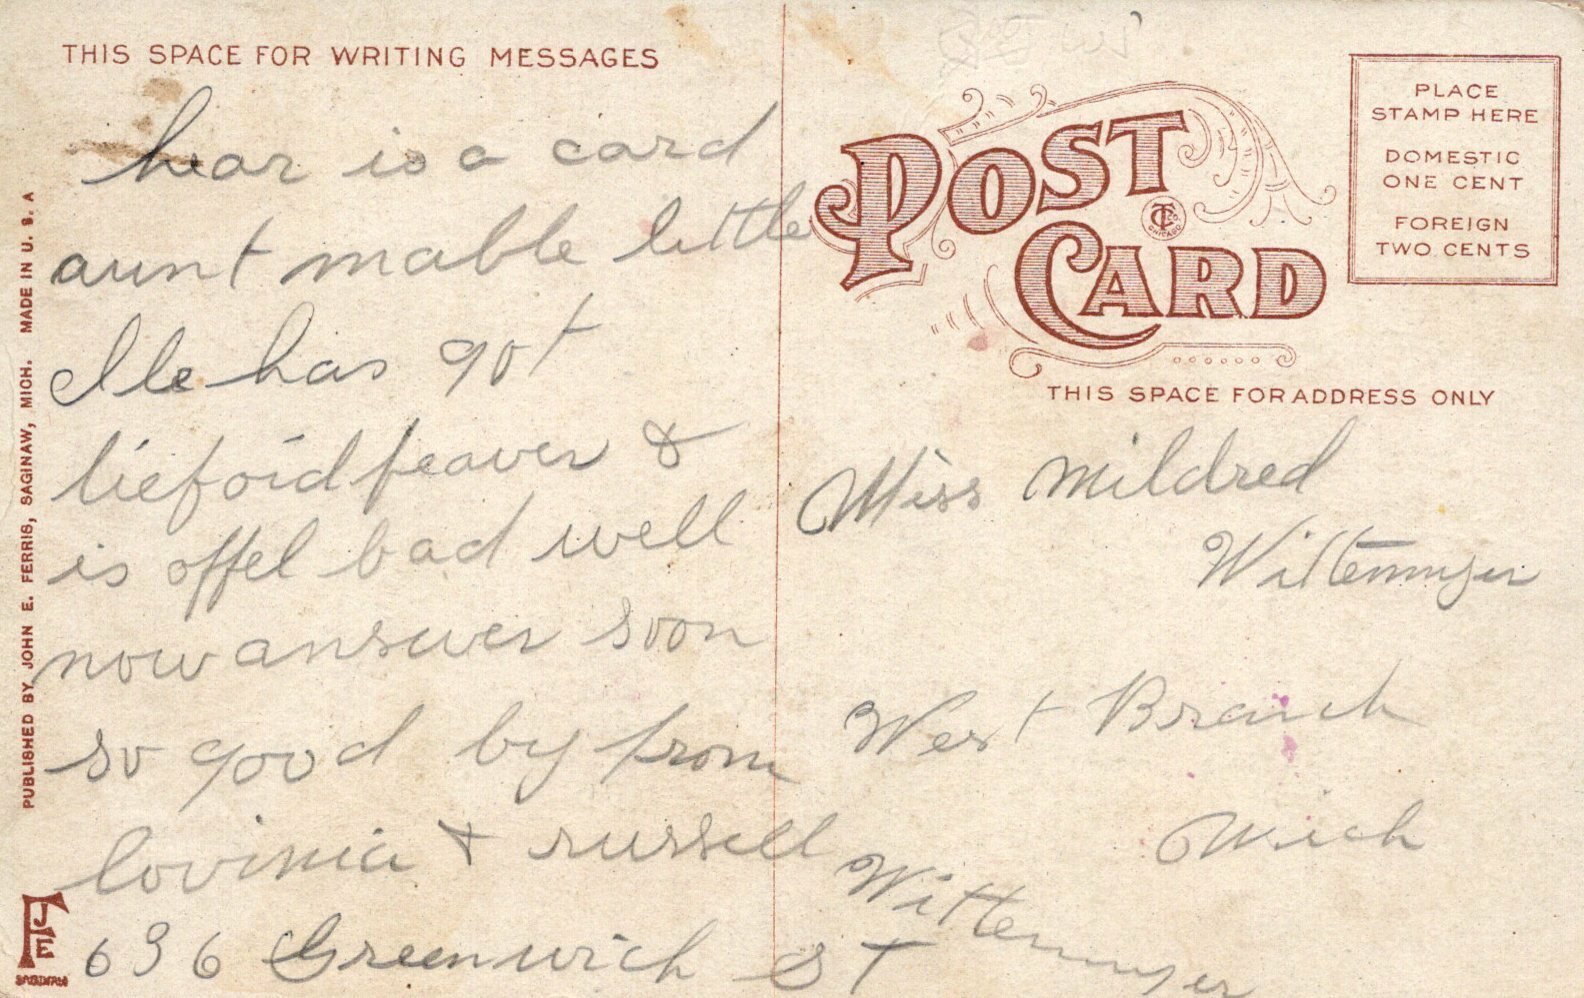 THIS SPACE FOR WRITING MESSAGES
hear is a card
aunt mable little
Ile has got
liefoid feaver &
is offel bad well
now answer soon
so good by from
lovinia & russell
Wittemyer
636 Greenwich ST
PUBLISHED BY JOHN E. FERRIS, SAGINAW, MICH. MADE IN U. S. A
JFE
SAGINAW
POST
CARD
CT CO. CHICAGO
PLACE
STAMP HERE
DOMESTIC
ONE CENT
FOREIGN
TWO CENTS
THIS SPACE FOR ADDRESS ONLY
Miss Mildred
Wittemyer
West Branch
Mich